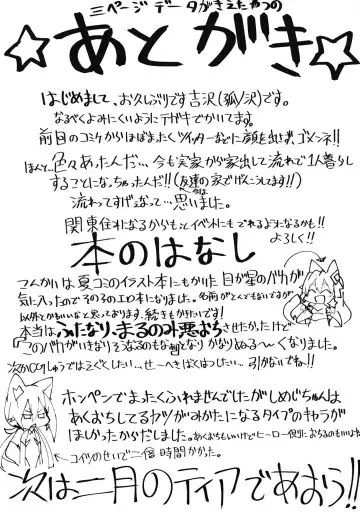 三ページデータがきえたやつの
あとがき
はじめまして、お久しぶりです吉沢(狐ノ沢)です。
なるべくよみにくいようにテガキでかいてます。
前回のコミケからほぼまったくツイッターなどに顔を出せず、ゴメンネ!!
ほんと…色々あったんだ…今も実家から家出して流れで1人暮らし
することになっちゃったんだ!!(今は友達の家でげんこうしてます!!)
流れってすげぇなって…思いました。
関東住みになるからもっとイベントにもでれるようになるかも!!
よろしく!!
本のはなし
こんかいは夏コミのイラスト本にもかいた目が星のバカが
気に入ったのでそのその本になりました。名前がとんでもないですが
以外とかわいいなと思っております。続きもかりたいです!
本当はふたなり、まるのみ悪おちさせたかったけど
「このバカがいきなりそうなるのもな」となりかなりぬる〜くなりました。
次のCGしゅうではらくごくしたい…せーへきばくはつしたい…引かないでね!!
ホンペンでまったくふれませんでしたがしめじちゃんは
あくおちしてるヤツがみかたになるタイプのキャラが
ほしかったからだしました。あくおちもいいけどヒーロー側におちるのもいいよね
←コイツのせいで二倍時間かかった。
次は二月のティアであおう!!